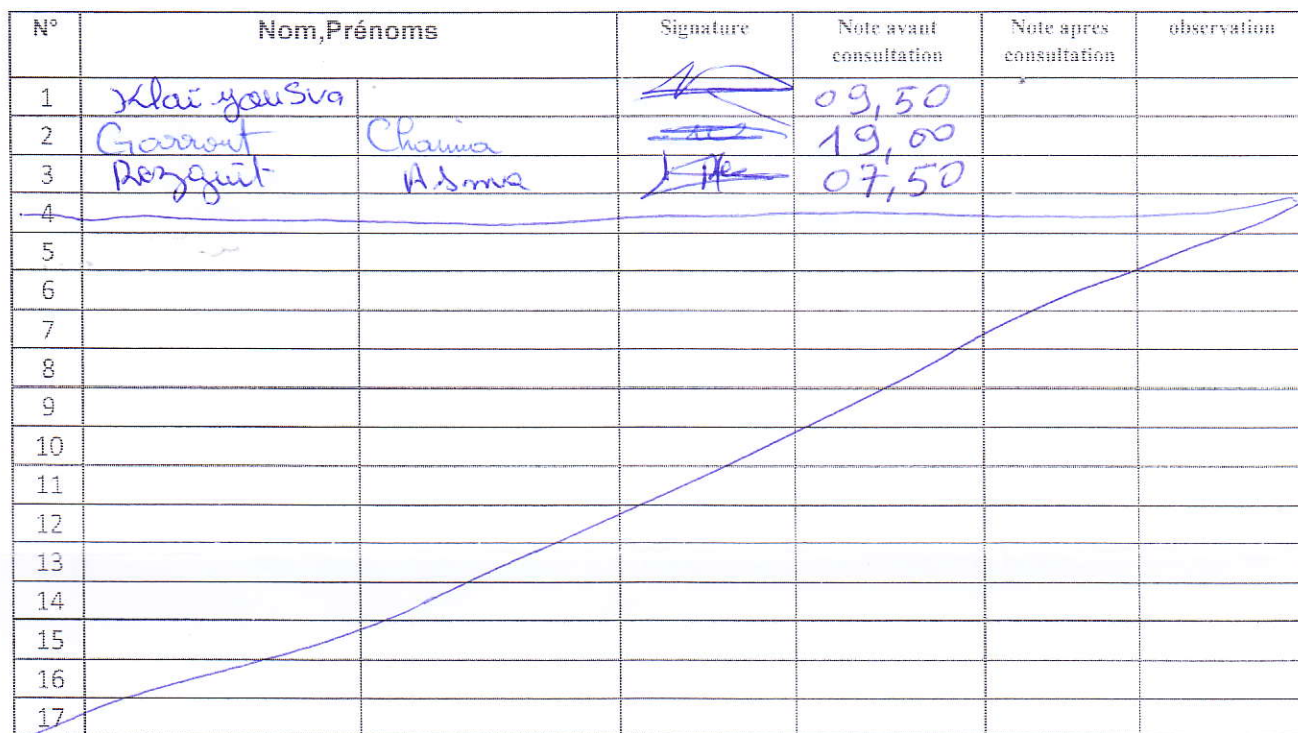 N° Nom,Prénoms Signature Note avant consultation Note apres consultation observation
1 Klai yousva 09,50
2 Garrout Chaima 19,00
3 Rezguit Asma 07,50
4
5
6
7
8
9
10
11
12
13
14
15
16
17